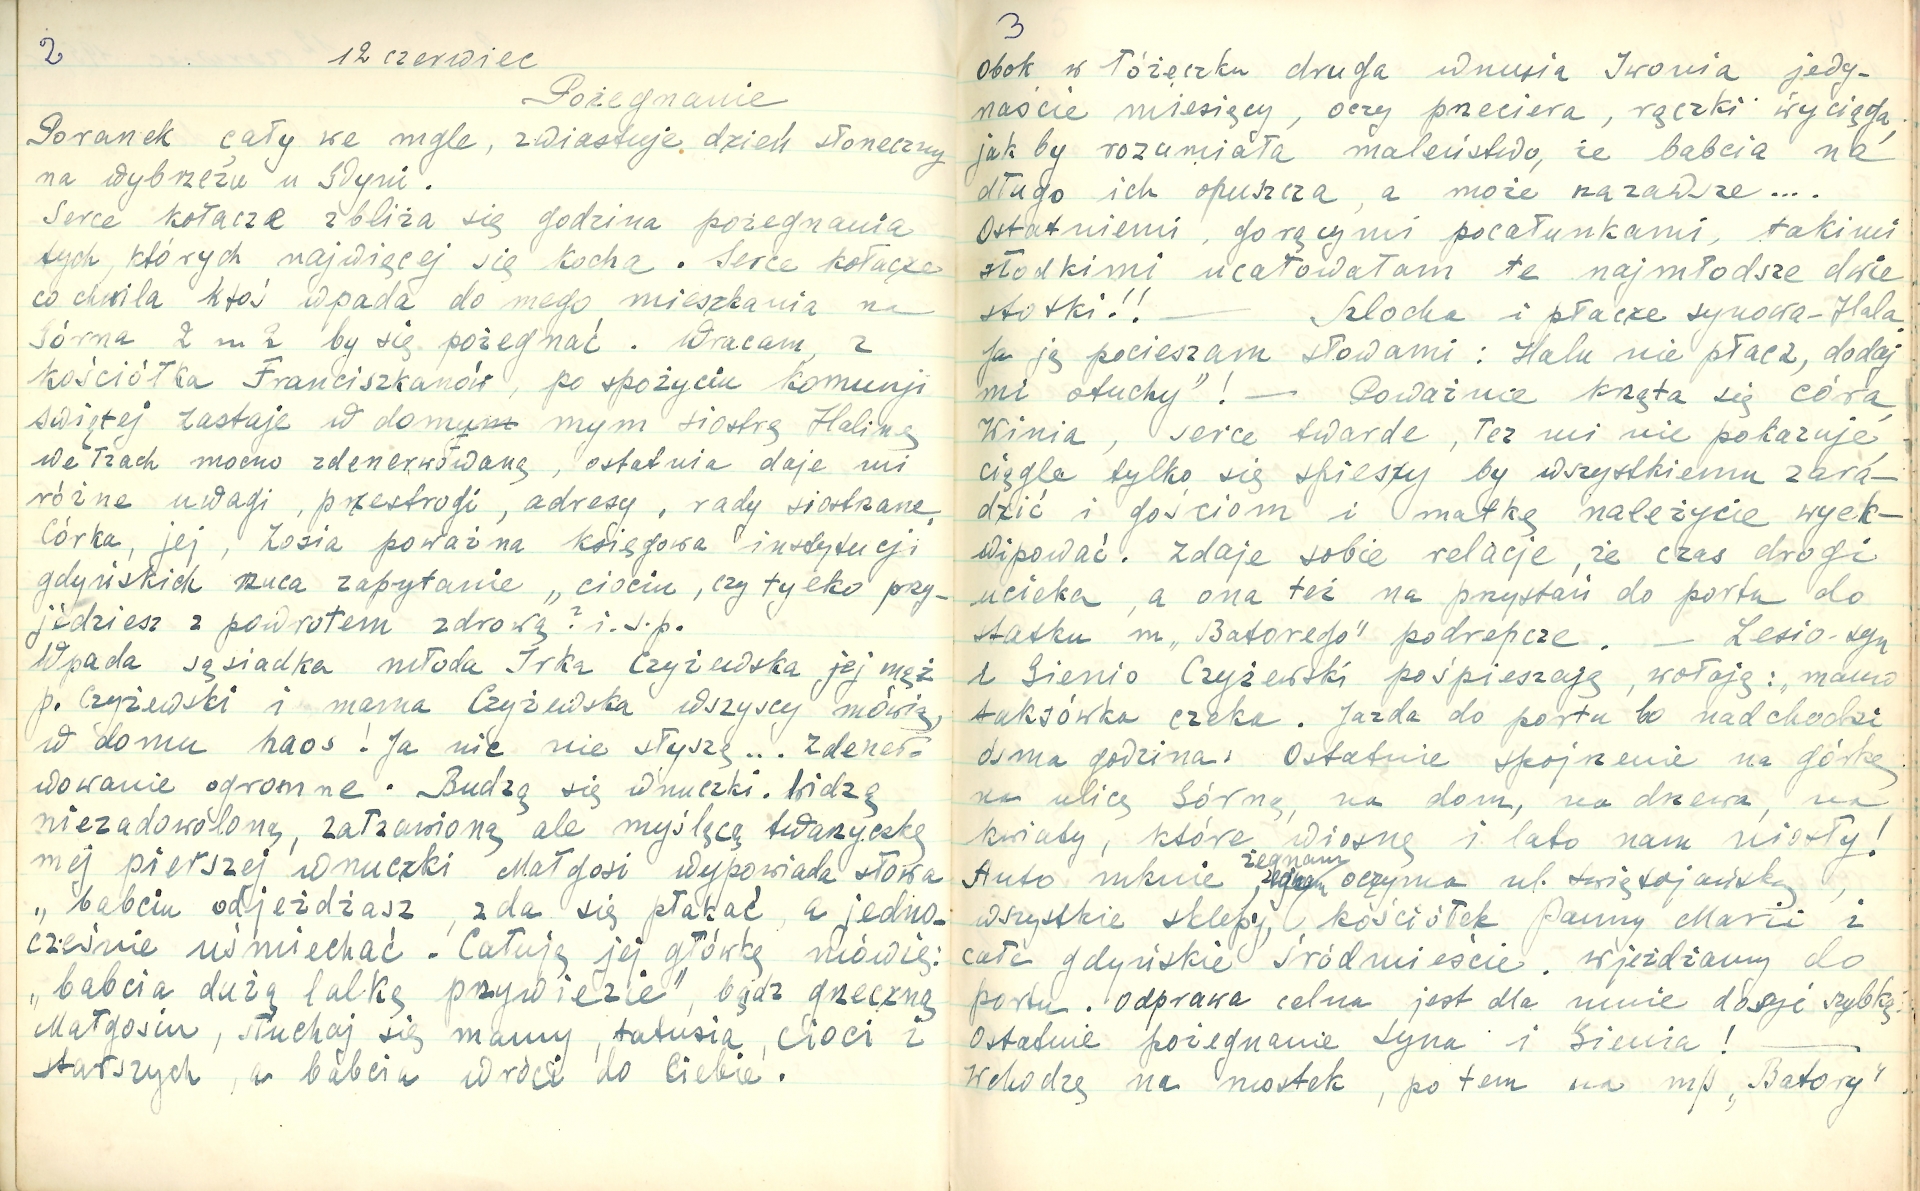 2
12 czerwiec
Pożegnanie
Poranek cały we mgle, zwiastuje dzień słoneczny
na wybrzeżu w Gdyni.
Serce kołacze zbliża się godzina pożegnania
tych, których najwięcej się kocha. Serce kołacze
co chwila ktoś wpada do mego mieszkania na
Górna 2 m 2 by się pożegnać. Wracam z
kościółka Franciszkanów, po spożyciu Komunji
świętej zastaje w domu mym siostrę Halinę
we łzach mocno zdenerwowaną, ostatnia daje mi
różne uwagi, przestrogi, adresy, rady siostrzane.
Córka, jej, Zosia poważna księgowa instytucji
gdyńskich rzuca zapytanie „ciociu, czy tylko przy-
jedziesz z powrotem zdrową? i.t.p.
Wpada sąsiadka młoda Irka Czyżewska jej mąż
p. Czyżewski i mama Czyżewska wszyscy mówią,
w domu haos! Ja nic nie słyszę... Zdener-
wowanie ogromne. Budzą się wnuczki. Widzę
niezadowoloną, załzawioną ale myślącą twarzyczkę
mej pierszej wnuczki Małgosi wypowiada słowa
„babciu odjeżdżasz, zda się płakać, a jedno-
cześnie uśmiechać. Całuję jej główkę mówię:
„babcia dużą lalkę przywiezie", bądz grzeczną
Małgosiu, słuchaj się mamy, tatusia, cioci i
starszych, a babcia wróci do Ciebie.
3
Obok w łóżeczku druga wnusia Iwonia jedy-
naście miesięcy, oczy przeciera, rączki wyciąga,
jak by rozumiała maleństwo, że babcia na
długo ich opuszcza, a może nazawsze....
Ostatniemi, gorącymi pocałunkami, takimi
słodkimi ucałowałam te najmłodsze dwie
stotki!! — Szlocha i płacze synowa-Hala
Ja ją pocieszam słowami: Halu nie płacz, dodaj
mi otuchy"! — Poważnie krząta się córa,
Winia, serce twarde, łez mi nie pokazuje
ciągle tylko się spieszy by wszystkiemu zara-
dzić i gościom i matkę należycie wyek-
wipować. Zdaje sobie relację, że czas drogi
ucieka, a ona też na przystań do portu do
statku m„Batorego" podrepcze. — Lesio-syn
i Gienio Czyżewski pośpieszają, wołają: „mamo
taksówka czeka. Jazda do portu bo nadchodzi
ósma godzina. Ostatnie spojrzenie na górkę
na ulicę Górną, na dom, na drzewa, na
kwiaty, które wiosnę i lato nam niosły!
Auto mknie, żegnam oczyma ul. świętojańską,
wszystkie sklepy, kościółek Panny Marii i
całe gdyńskie śródmieście. wjeżdżamy do
portu. Odprawa celna jest dla mnie dosyć szybką.
Ostatnie pożegnanie syna i Gienia! —
Wchodzę na mostek, potem na m/s „Batory"